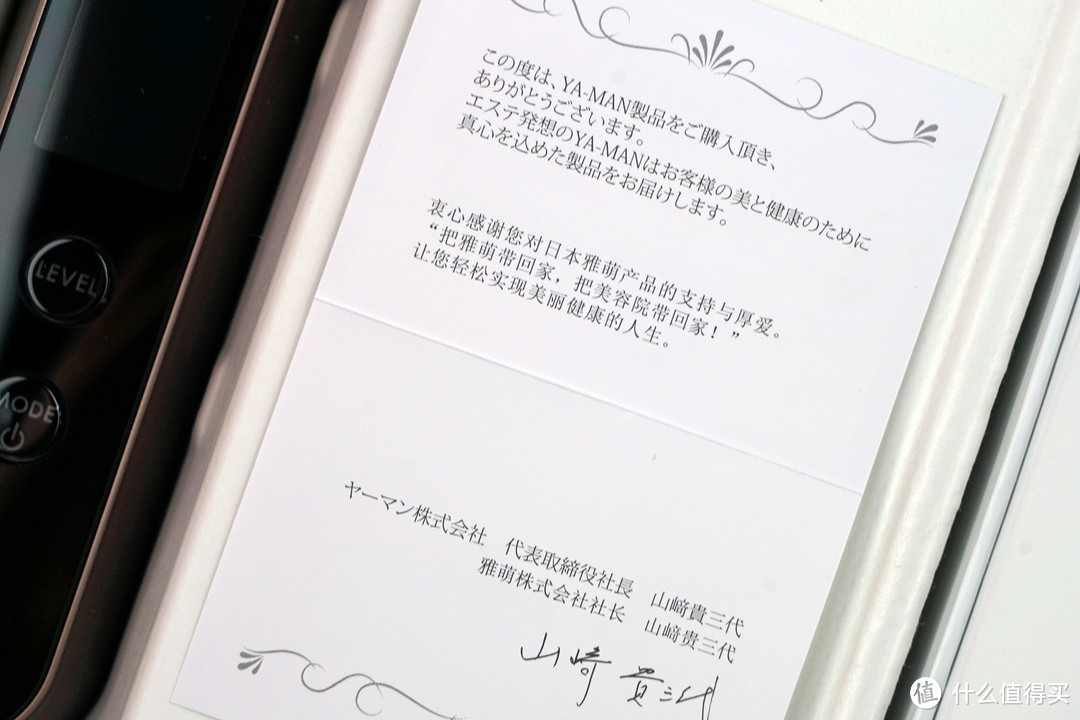 この度は、YA-MAN製品をご購入頂き、
ありがとうございます。
エステ発想のYA-MANはお客様の美と健康のために
真心を込めた製品をお届けします。
衷心感谢您对日本雅萌产品的支持与厚爱。
“把雅萌带回家，把美容院带回家！”
让您轻松实现美丽健康的人生。
ヤーマン株式会社　代表取締役社長　山﨑貴三代
雅萌株式会社社长　山﨑贵三代
山﨑貴三代
LEVEL
MODE
值 什么值得买